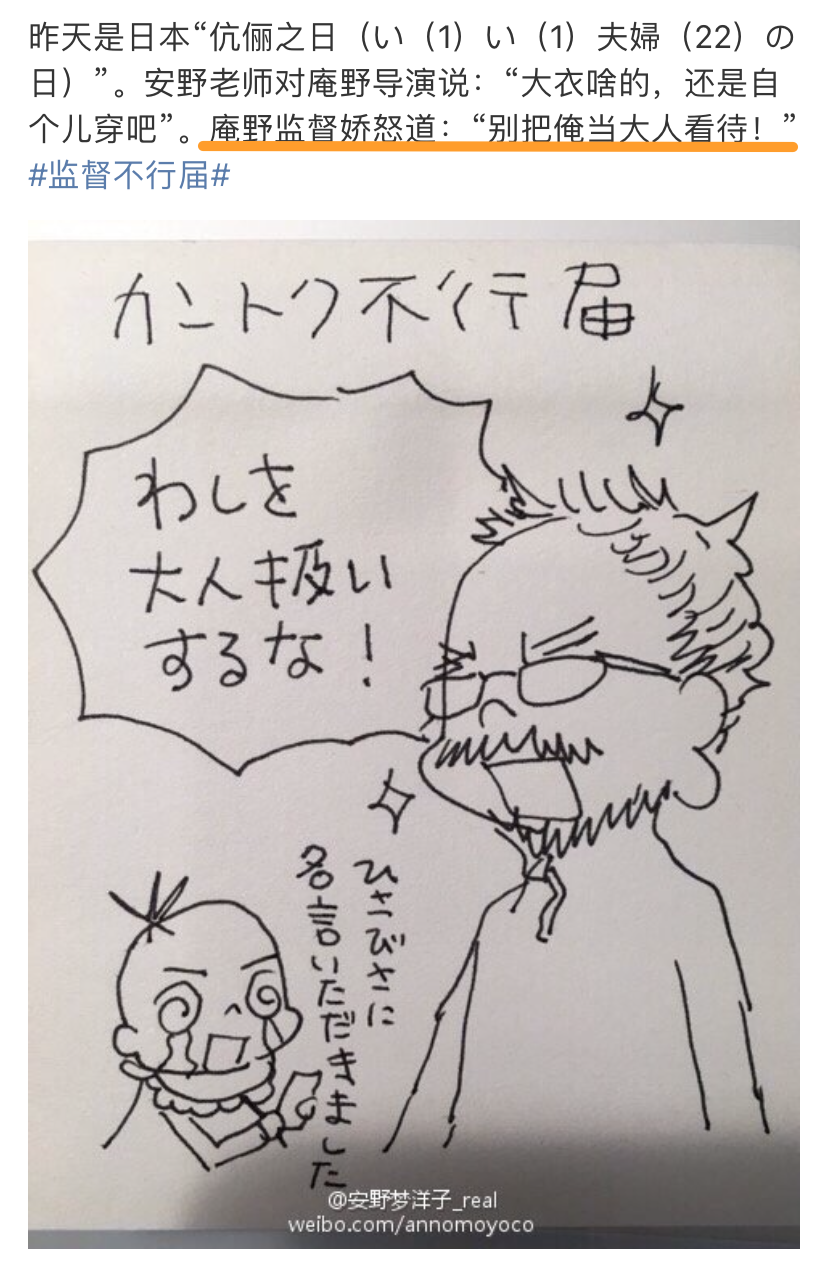 昨天是日本“伉俪之日（い（1）い（1）夫婦（22）の
日）”。安野老师对庵野导演说：“大衣啥的，还是自
个儿穿吧”。庵野监督娇怒道：“别把俺当大人看待！”
#监督不行届#
カントク不行届
わしを
大人扱い
するな！
ひさびさに
名言いただきました
@安野梦洋子_real
weibo.com/annomoyoco